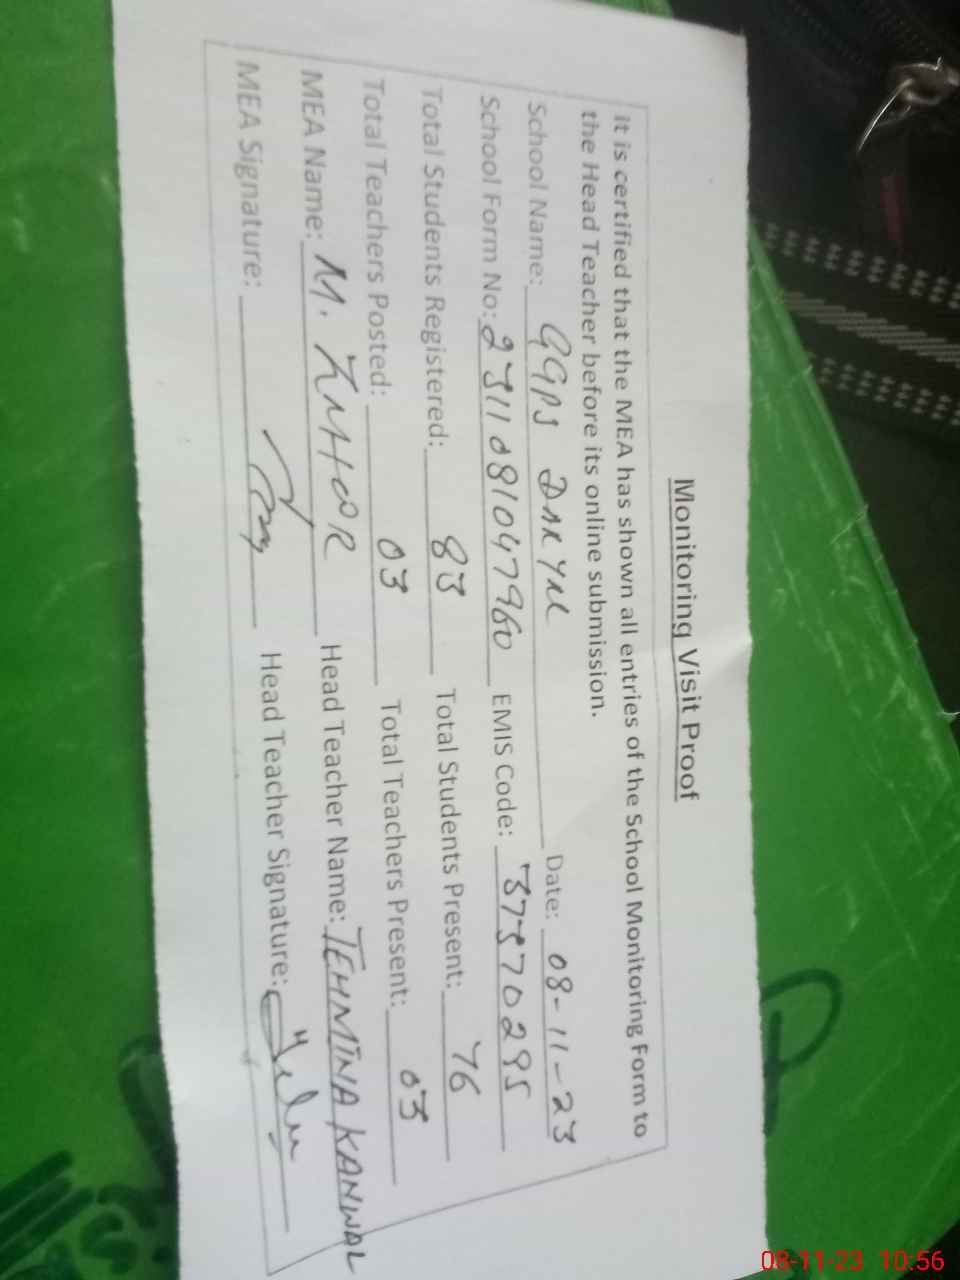 Monitoring Visit Proof
It is certified that the MEA has shown all entries of the School Monitoring Form to
the Head Teacher before its online submission.
School Name: GGPS Date: 08-11-23
School Form No: EMIS Code: 37370295
Total Students Registered: 83 Total Students Present: 76
Total Teachers Posted: 03 Total Teachers Present: 03
MEA Name: M. Head Teacher Name: TEHMINA KANWAL
MEA Signature: Head Teacher Signature:
08-11-23 10:56